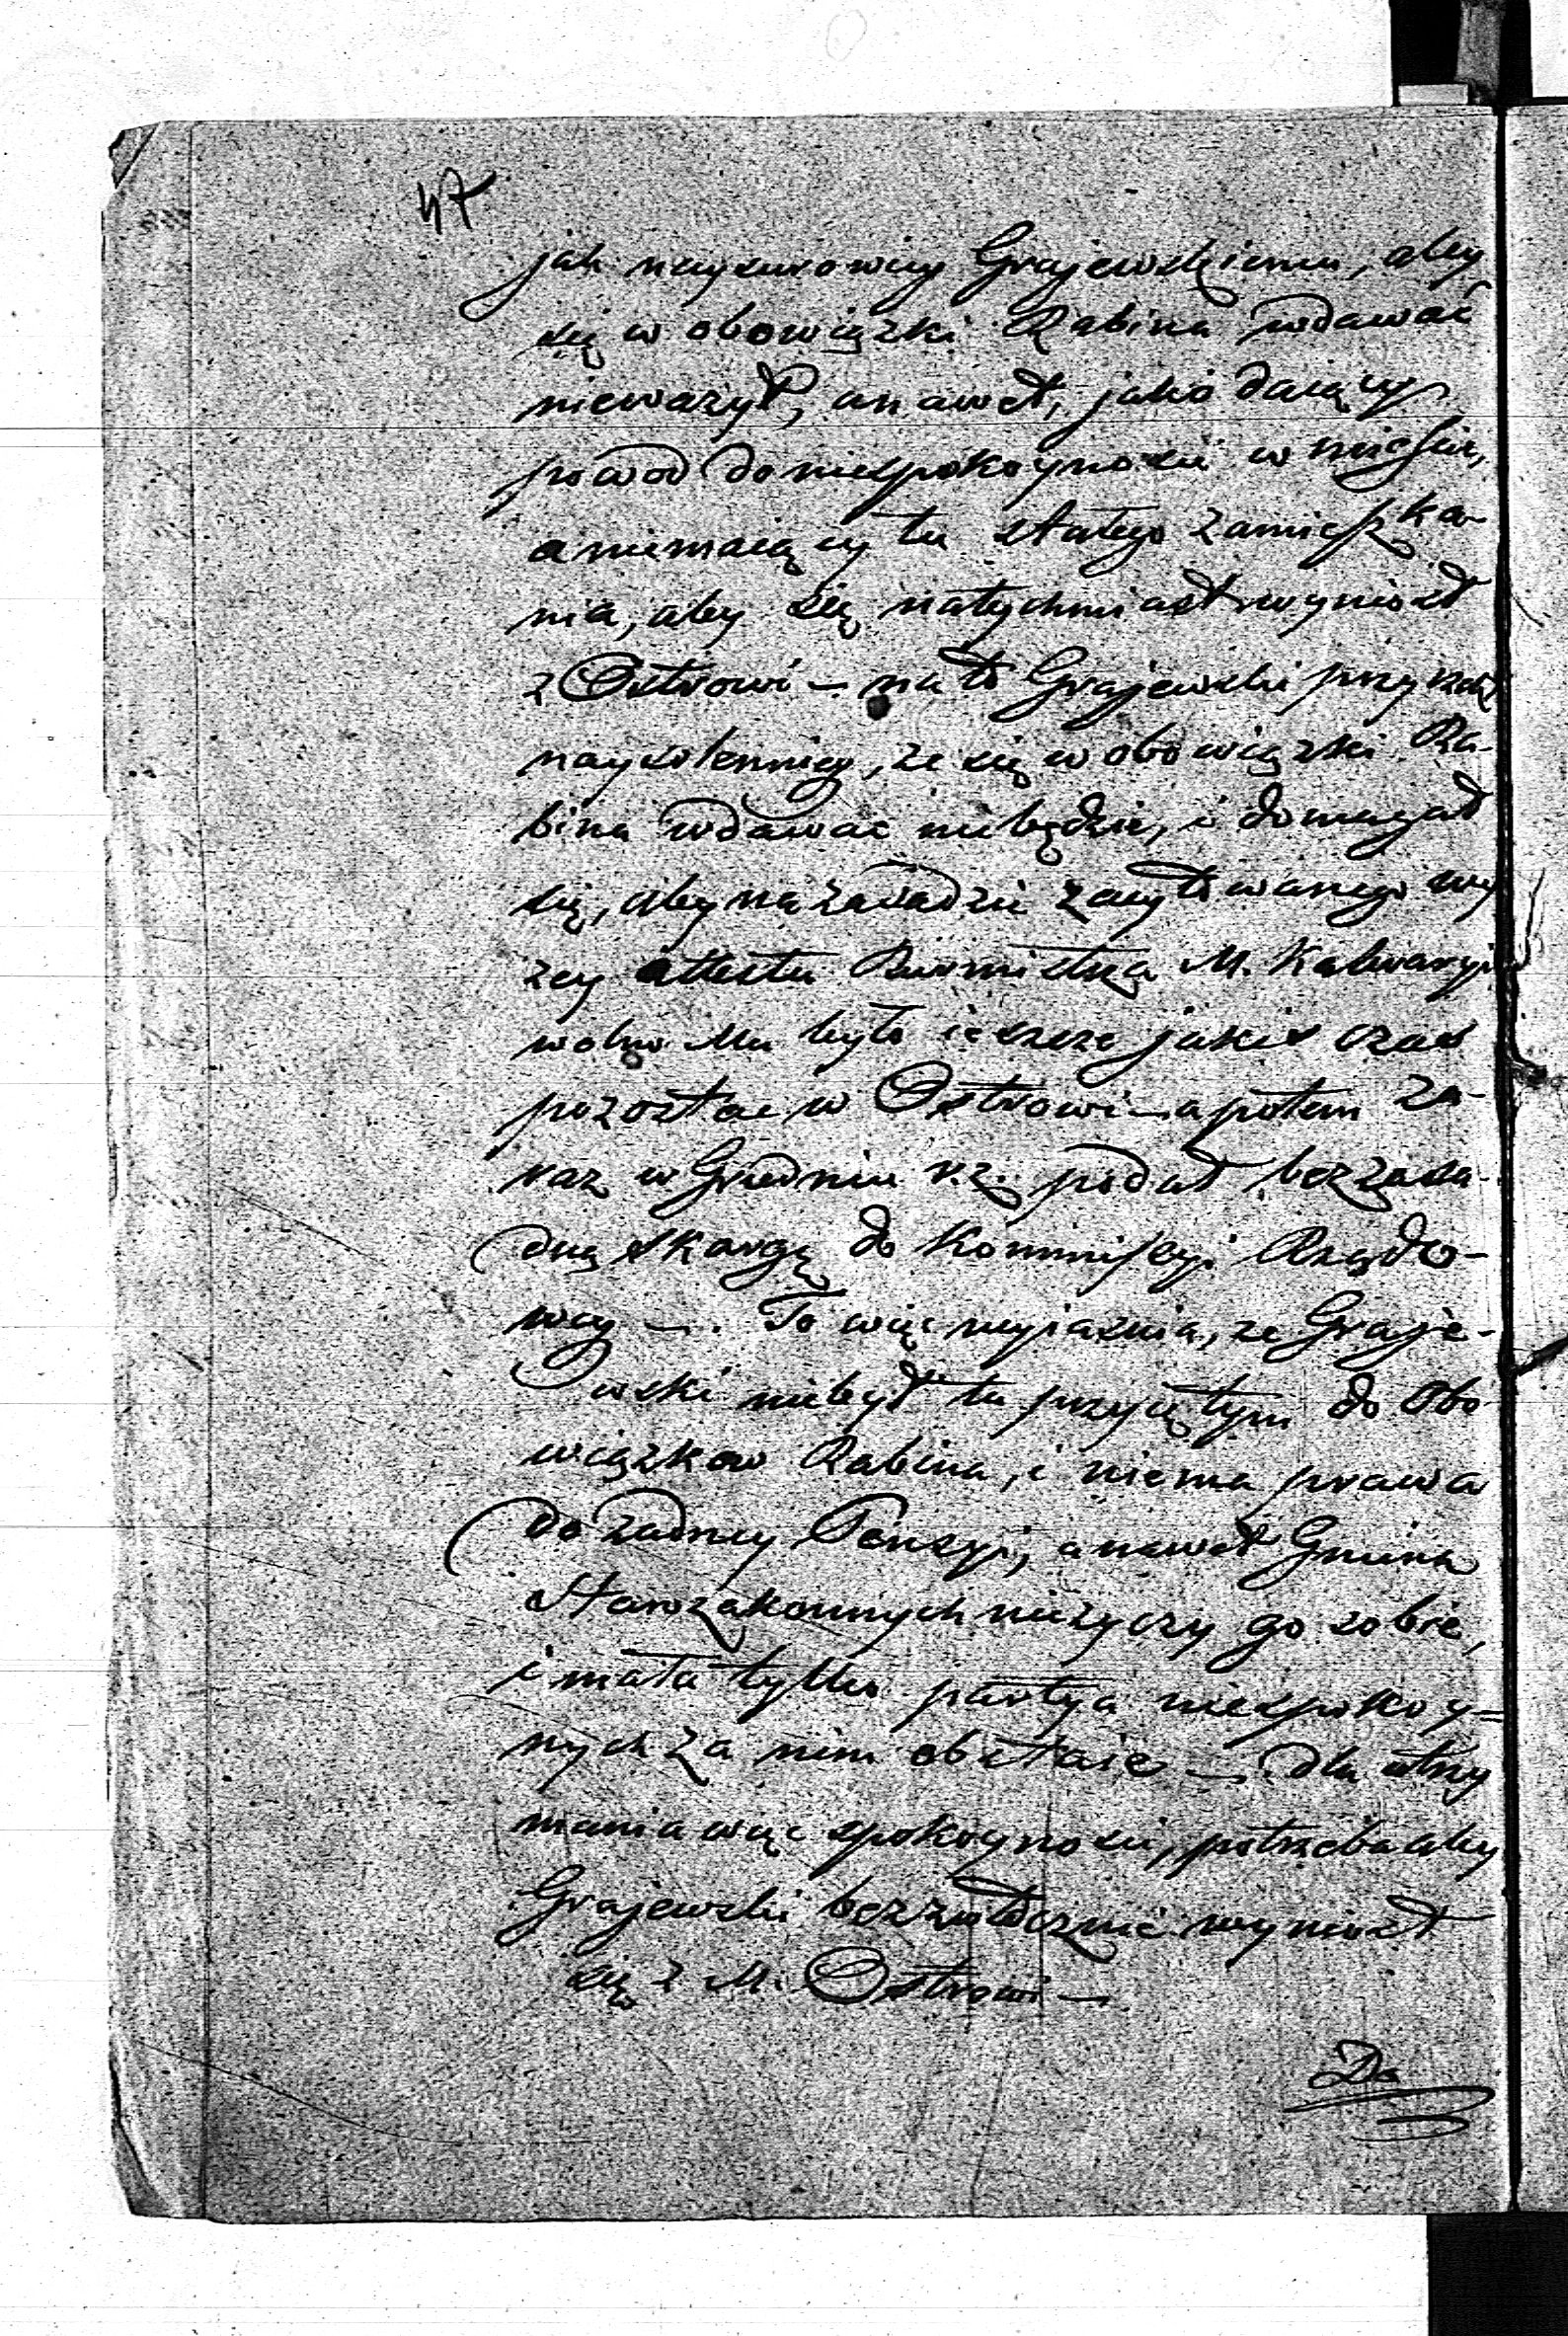 47
jak naysurowiey Grajewskiemu, aby
się w obowiązki Rabina wdawać
nieważył, anawet, jako daiący
powod do niespokoyności w mieście,
a niemaiący tu stałego zamieszka-
nia, aby się natychmiast wyniosł
z Ostrowi – na to Grajewski przyrzekł
naysolenniey, że się w obowiązki Ra-
bina wdawać niebędzie, i domagał
się, aby na zasadzie zacytowanego wy
żey attestu Burmistrza M. Kalwaryi
wolno Mu było ieszcze jakiś czas
pozostać w Ostrowi – a potem za-
raz w Grudniu r.z. podał bezzasa-
dną skargę do Kommissyi Rządo-
wey –. To więc wyiaśnia, że Graje-
wski niebył tu przyiętym do Obo
wiązkow Rabina, i niema prawa
do żadney Pensyi, a nawet Gmina
Starozakonnych nieżyczy go sobie,
i mała tylko partya niespokoy=
nych za nim obstaie – dla utrzy
mania więc spokoyności, potrzeba aby
Grajewski bezzwłocznie wyniosł
się z M. Ostrowi –
Do